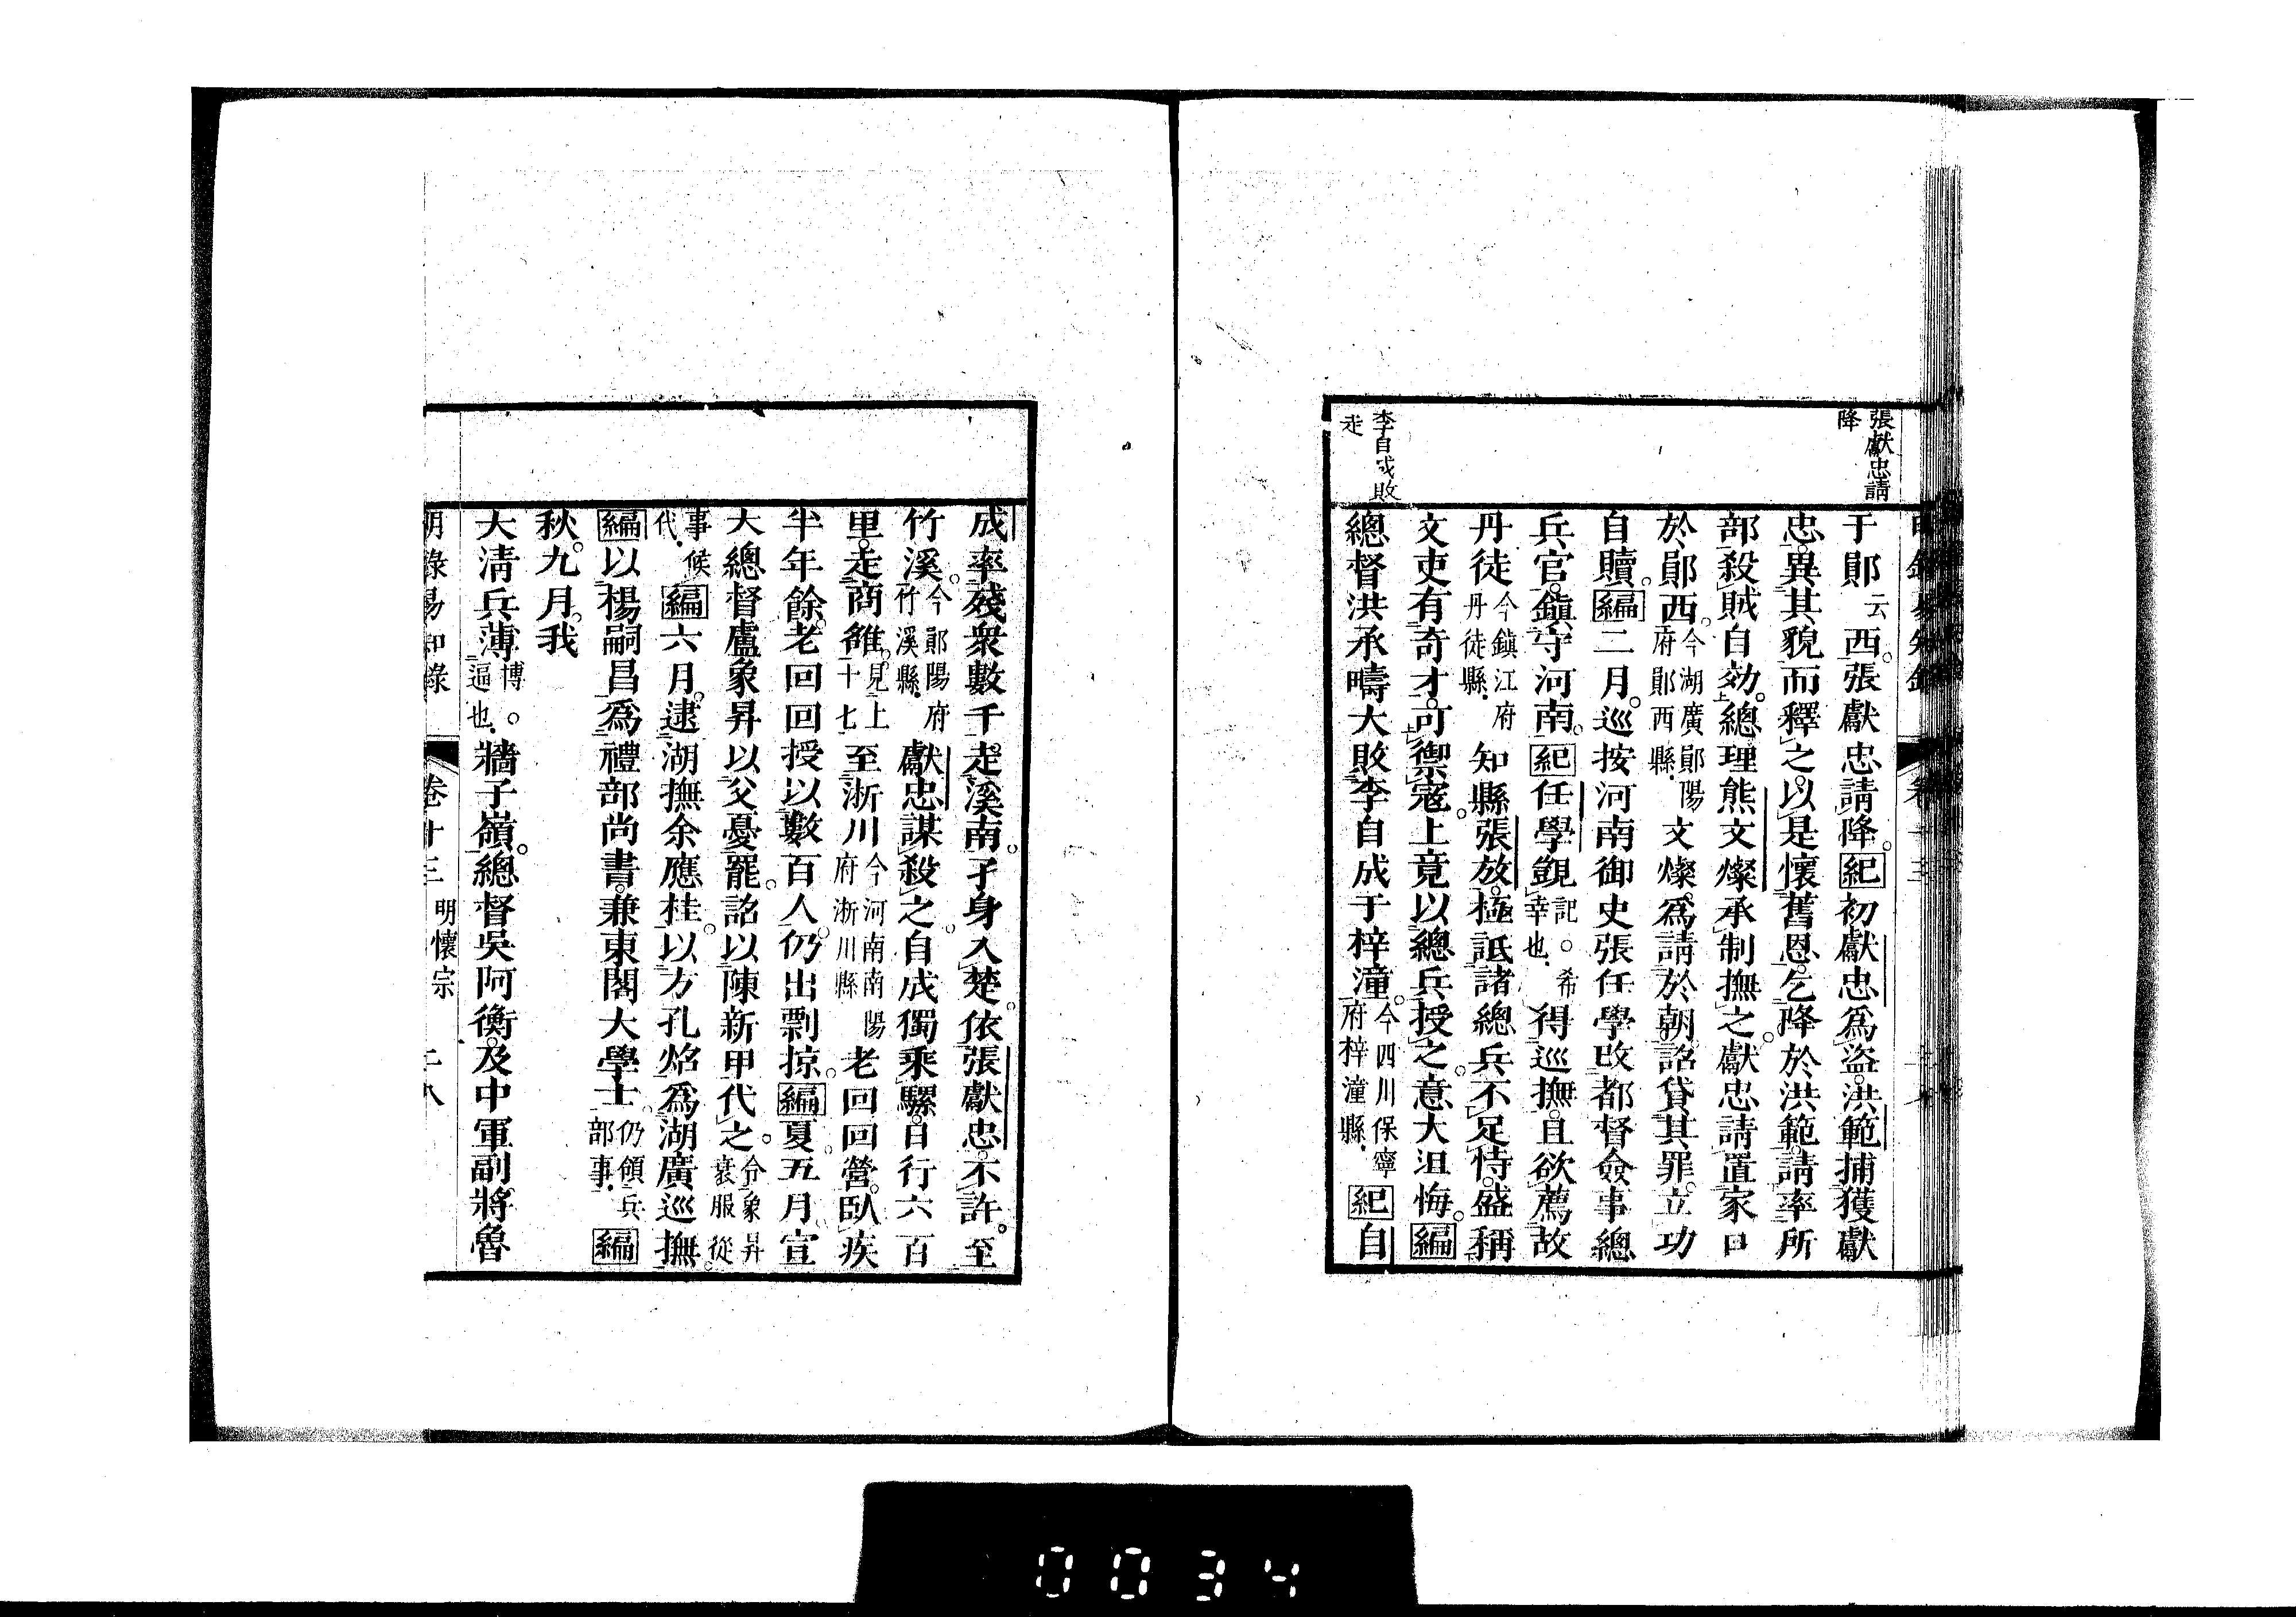 張獻忠請
降
于鄖云西。張獻忠請降。紀初獻忠爲盜。洪範捕獲獻
忠。異其貌而釋之。以是懷舊恩。乞降於洪範。請率所
部殺賊自効。總理熊文燦承制撫之。獻忠請置家口
於鄖西。今湖廣鄖陽府鄖西縣。文燦爲請於朝。詔貸其罪。立功
自贖。編二月。巡按河南御史張任學改都督僉事總
兵官。鎮守河南。紀任學覬記。○希幸也。得巡撫。且欲薦故
丹徒今鎮江府丹徒縣。知縣張放。極詆諸總兵不足恃。盛稱
文吏有奇才可禦寇。上竟以總兵授之。意大沮悔。編
總督洪承疇大敗李自成于梓潼。今四川保寧府梓潼縣。紀自
李自成敗
走
成率殘衆數千。走溪南。孑身入楚。依張獻忠。不許。至
竹溪。今鄖陽府竹溪縣。獻忠謀殺之。自成獨乘騾。日行六百
里。走商雒。見上二十七至淅川今河南南陽府淅川縣老回回營。臥疾
半年餘。老回回授以數百人。仍出剽掠。編夏五月。宣
大總督盧象昇以父憂罷。詔以陳新甲代之。令象昇衰服從
事候代。編六月。逮湖撫余應桂。以方孔炤爲湖廣巡撫。
編以楊嗣昌爲禮部尚書。兼東閣大學士。仍領兵部事。編
秋。九月。我
大清兵薄博。○逼也。牆子嶺。總督吳阿衡。及中軍副將魯
明鑑易知錄 卷十三 明懷宗
0034